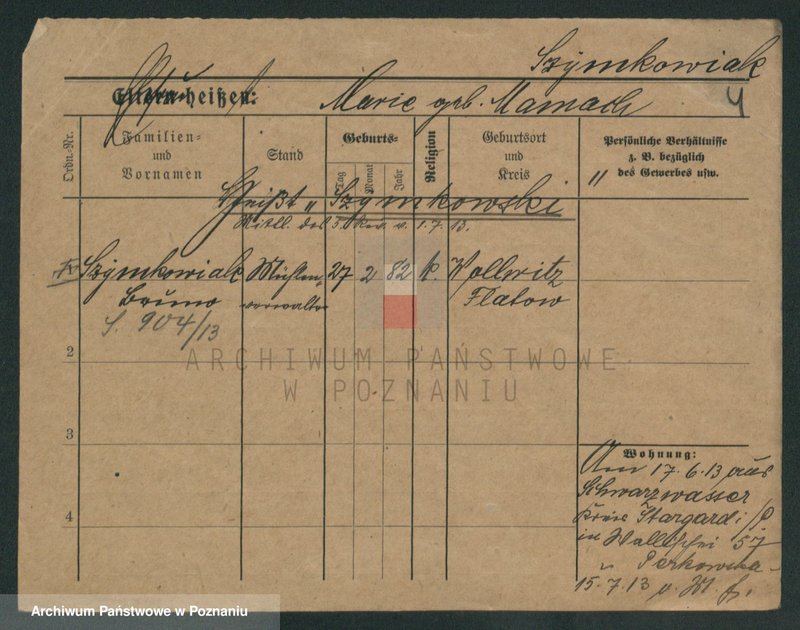 Szymkowiak
Eltern heißen: Marie geb. Mamach 4
Ordn.-Nr.
Familien- und Vornamen
Stand
Geburts-
Tag
Monat
Jahr
Religion
Geburtsort und Kreis
Persönliche Verhältnisse z. B. bezüglich des Gewerbes usw.
heißt „ Szymkowski
Mittl. des 5. Rev. v. 1.7.13.
Szymkowiak Mühlen- 27 2 82 k. Wollwitz
Bruno verwalter Flatow
S. 904/13
2
ARCHIWUM PAŃSTWOWE
W POZNANIU
3
Wohnung:
Am 17.6.13 aus
Schwarzwasser
Kreis Stargard i/P
4
in Wallischei 57
Perkowska
15.7.13 v. W.
Archiwum Państwowe w Poznaniu